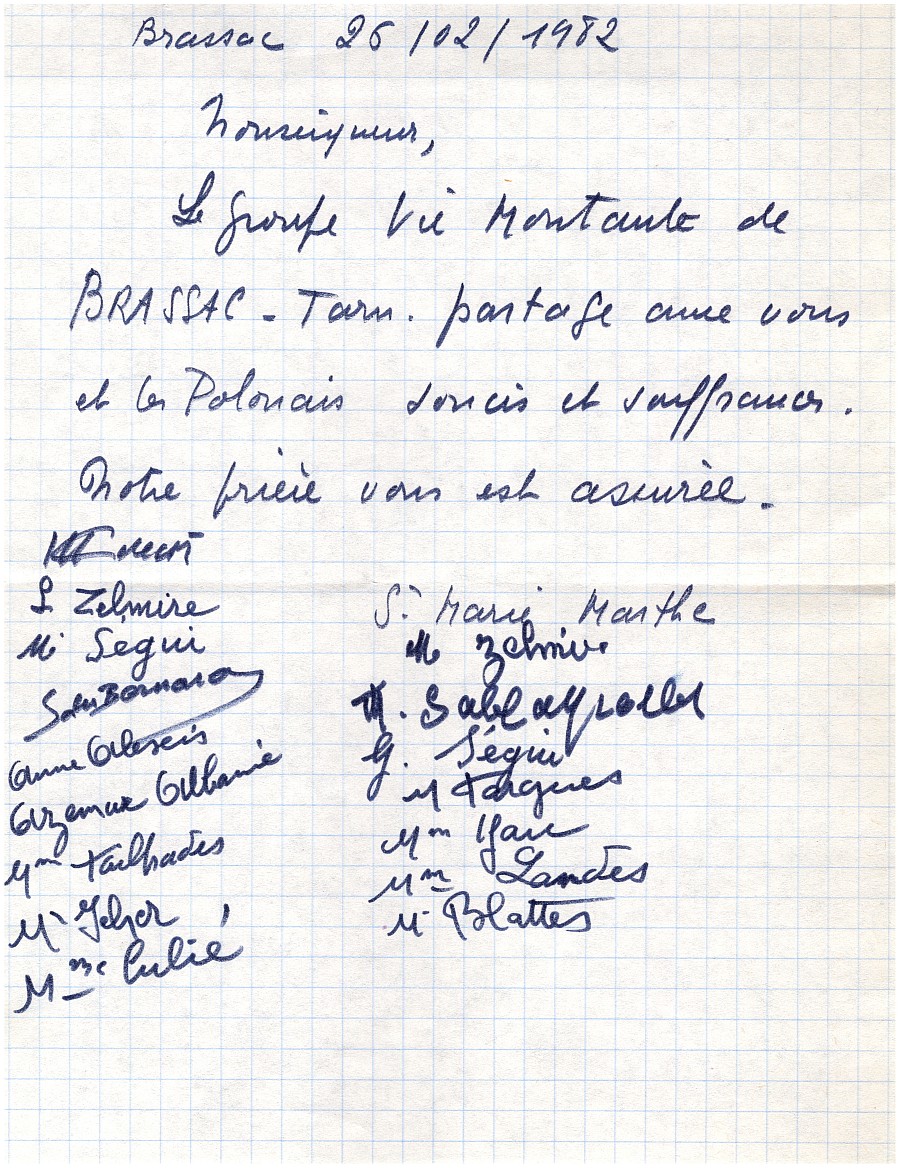 Brassac 26/02/1982
Monseigneur,
Le groupe Vie Montante de
BRASSAC - Tarn. partage avec vous
et les Polonais soucis et souffrances.
Notre prière vous est assurée.
L Zelmire
Sr Marie Marthe
M Ségui
M Zelmire
M. Sablayrolles
Anne Alexis
G. Ségui
Azemar Albanie
M Fargues
Mm Tailhades
Mm
Mm Landes
M
M Blattes
Mme Culié